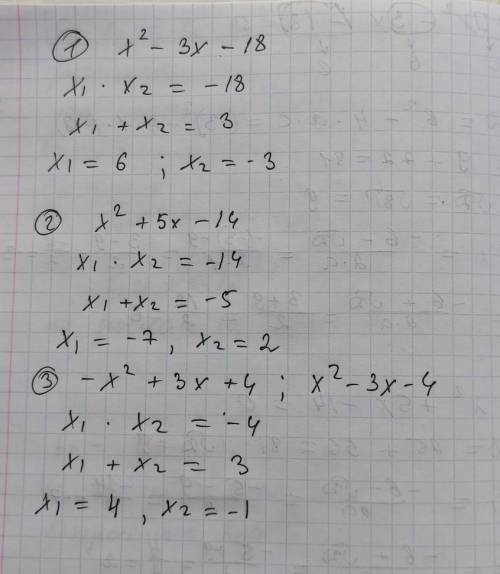 ① x² - 3x - 18
x₁ · x₂ = -18
x₁ + x₂ = 3
x₁ = 6 ; x₂ = -3
② x² + 5x - 14
x₁ · x₂ = -14
x₁ + x₂ = -5
x₁ = -7, x₂ = 2
③ -x² + 3x + 4 ; x² - 3x - 4
x₁ · x₂ = -4
x₁ + x₂ = 3
x₁ = 4, x₂ = -1